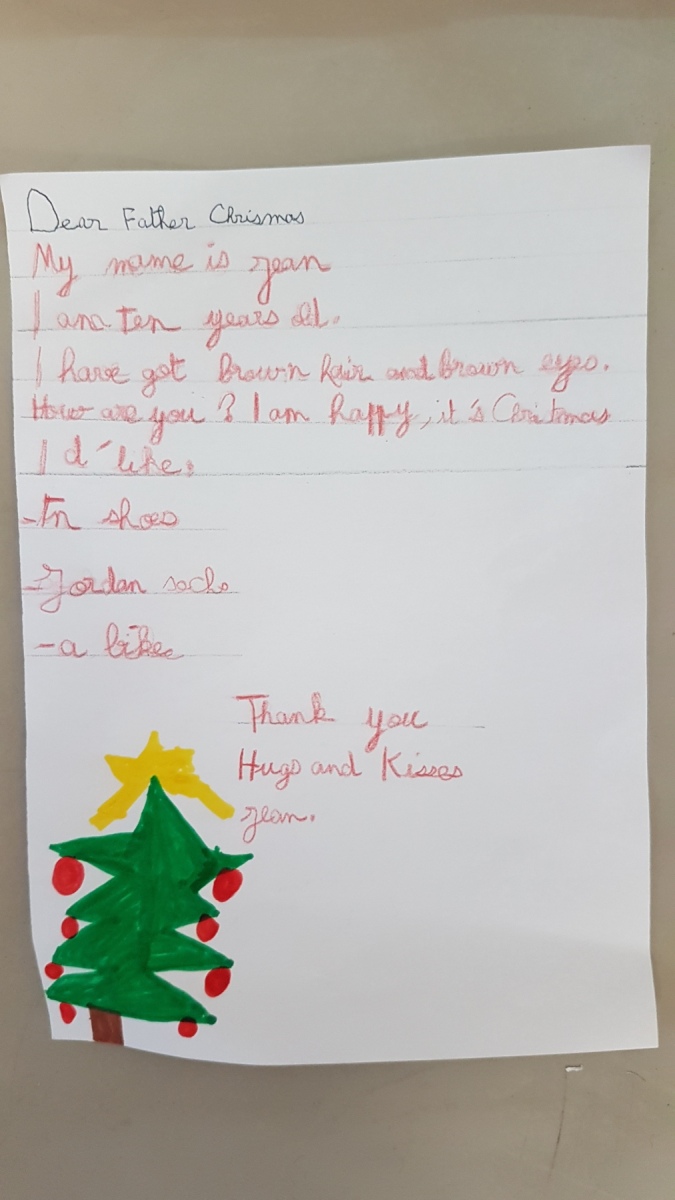 Dear Father Chrismas
My name is Jean
I am Ten years old.
I have got brown hair and brown eyes.
How are you ? I am happy, it's Chritmas
I d'like:
-Tn shoes
-Jordan socks
-a bike
Thank you
Hugs and Kisses
Jean.